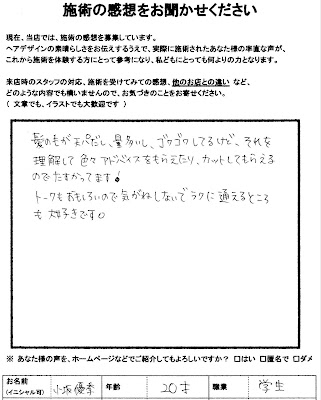 施術の感想をお聞かせください
現在、当店では、施術の感想を募集しています。
ヘアデザインの素晴らしさをお伝えするうえで、実際に施術されたあなた様の率直な声が、
これから施術を体験する方にとって参考になり、私どもにとっても何よりの力となります。
来店時のスタッフの対応、施術を受けてみての感想、他のお店との違い など、
どのような内容でも構いませんので、お気づきのことをお寄せください。
（ 文章でも、イラストでも大歓迎です ）
髪のもが天パだし、量多いし、ゴワゴワしてるけど、それを
理解して色々アドバイスをもらえたり、カットしてもらえる
のでたすかってます!
トークもおもしろいので気がねしないでラクに通えるところ
も大好きです。
※ あなた様の声を、ホームページなどでご紹介してもよろしいですか？ □はい □匿名で □ダメ
お名前 年齢 20才 職業 学生
(イニシャル可)